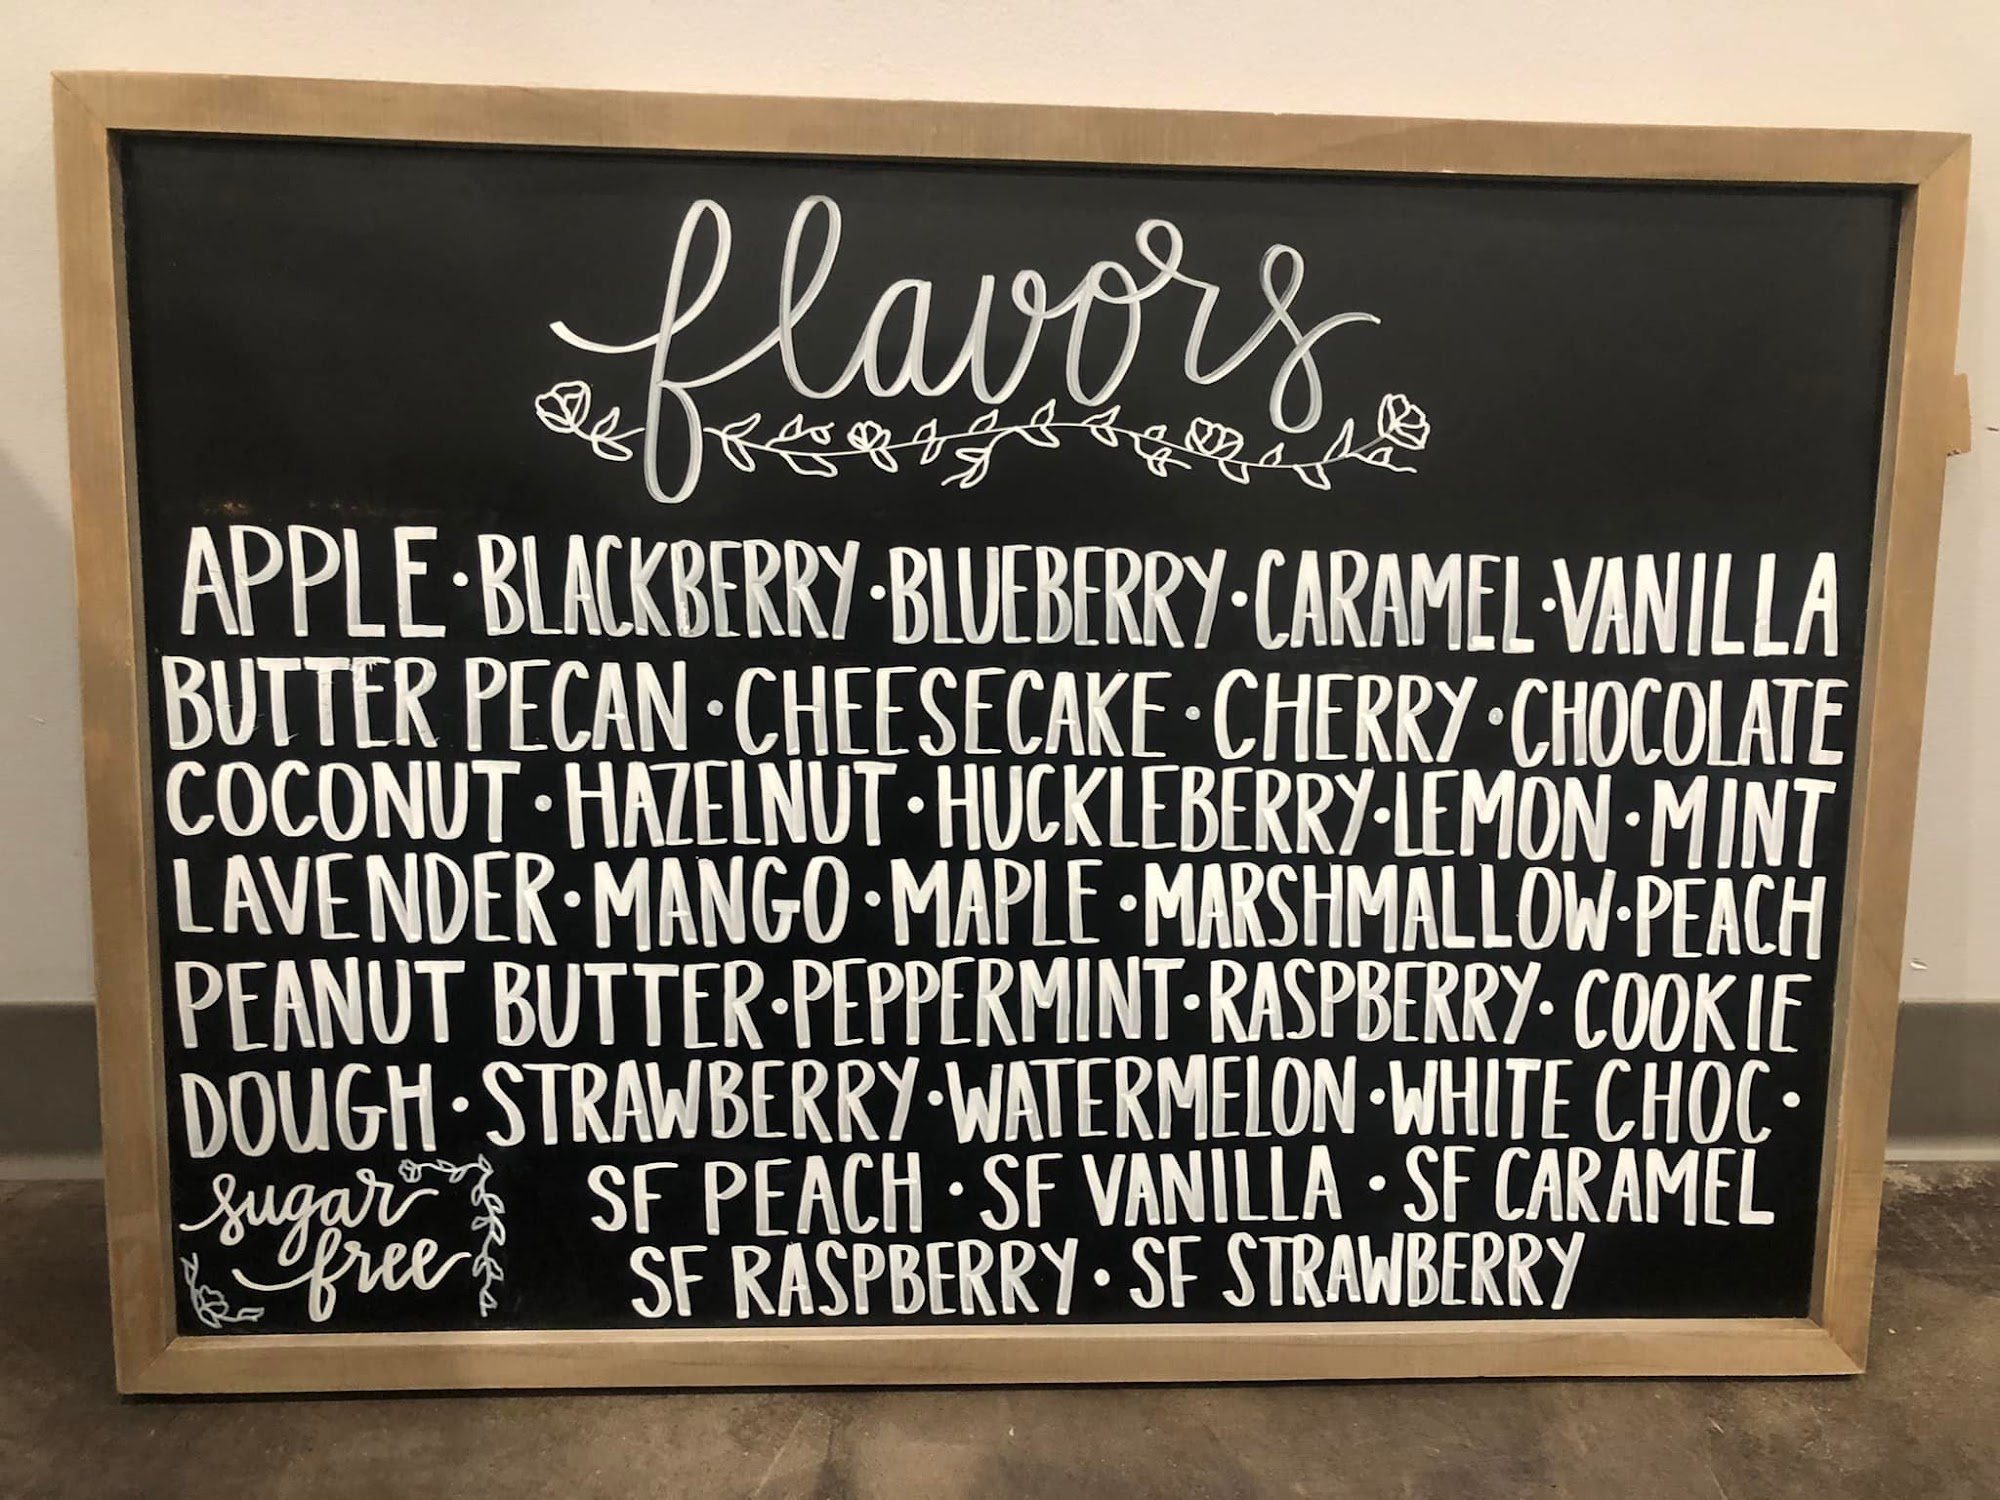 flavors
APPLE • BLACKBERRY • BLUEBERRY • CARAMEL • VANILLA
BUTTER PECAN • CHEESECAKE • CHERRY • CHOCOLATE
COCONUT • HAZELNUT • HUCKLEBERRY • LEMON • MINT
LAVENDER • MANGO • MAPLE • MARSHMALLOW • PEACH
PEANUT BUTTER • PEPPERMINT • RASPBERRY • COOKIE
DOUGH • STRAWBERRY • WATERMELON • WHITE CHOC •
sugar free
SF PEACH • SF VANILLA • SF CARAMEL
SF RASPBERRY • SF STRAWBERRY